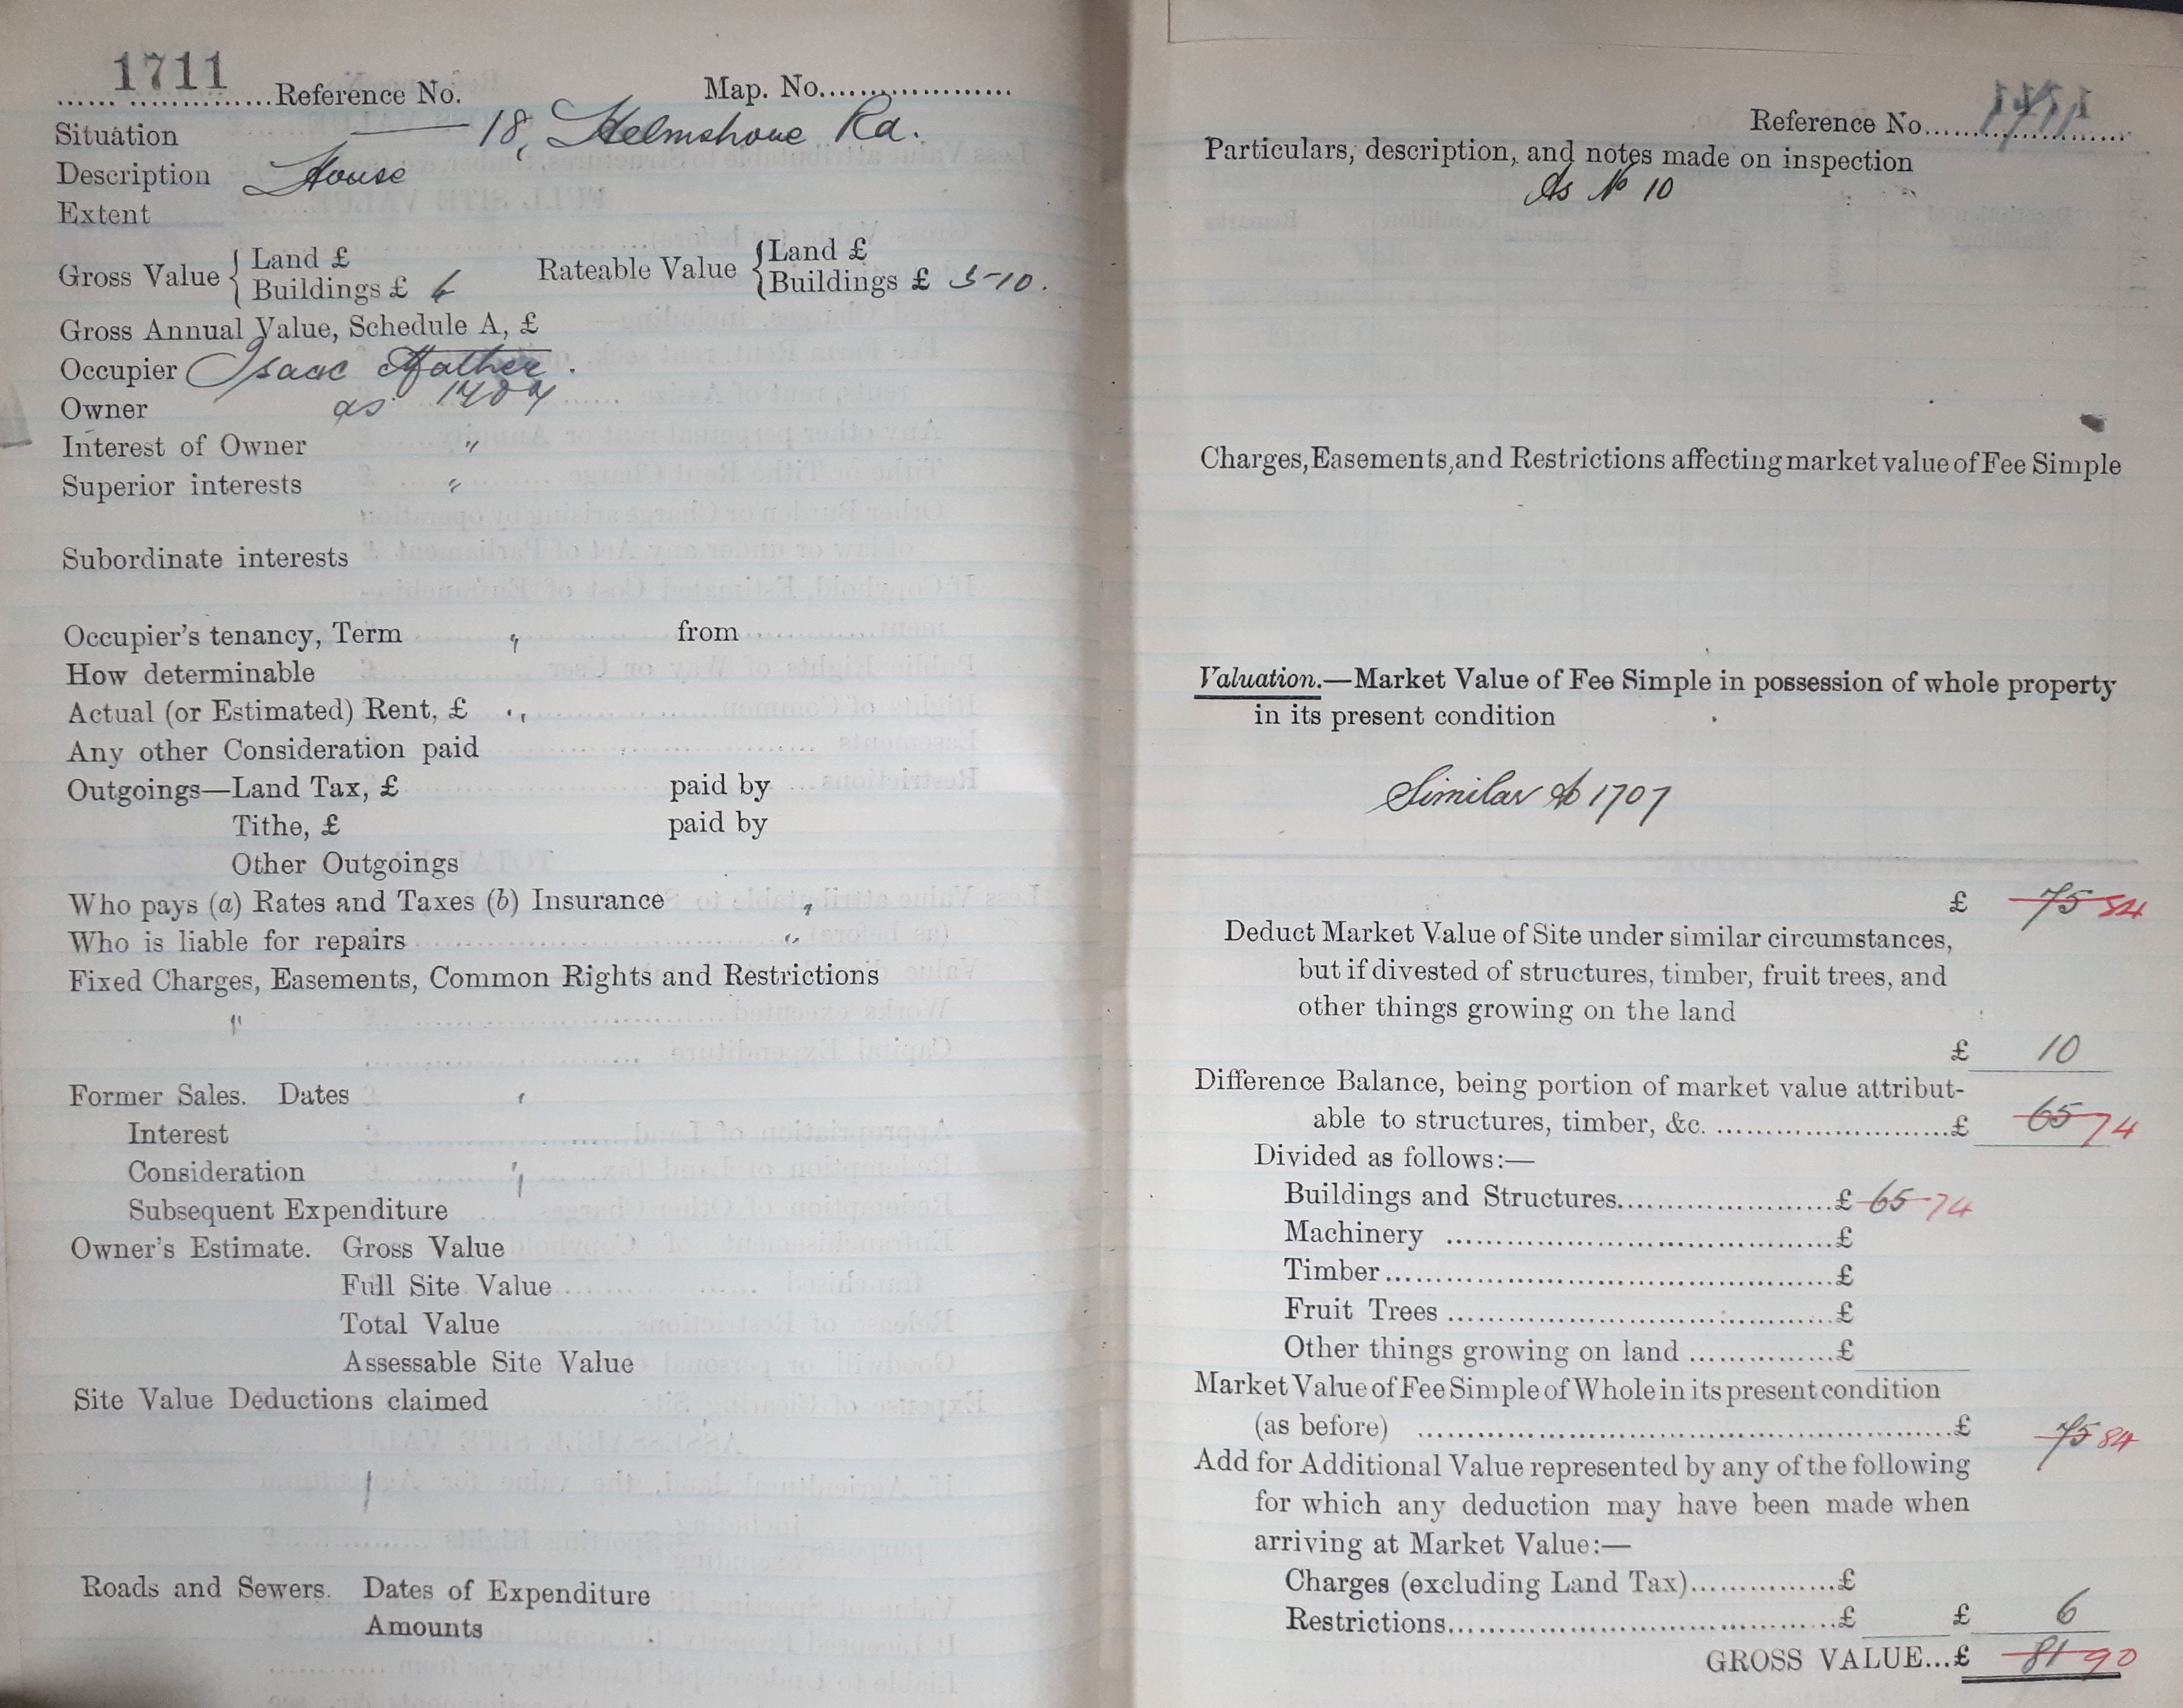 1711 Reference No. Map. No.
Situation 18, Helmshore Rd.
Description House
Extent
Gross Value { Land £
Buildings £ 6
Rateable Value { Land £
Buildings £ 5-10.
Gross Annual Value, Schedule A, £
Occupier Isaac Mather.
Owner as 1707
Interest of Owner "
Superior interests "
Subordinate interests
Occupier's tenancy, Term " from
How determinable
Actual (or Estimated) Rent, £ "
Any other Consideration paid
Outgoings—Land Tax, £ paid by
Tithe, £ paid by
Other Outgoings
Who pays (a) Rates and Taxes (b) Insurance "
Who is liable for repairs "
Fixed Charges, Easements, Common Rights and Restrictions
"
Former Sales. Dates "
Interest
Consideration "
Subsequent Expenditure
Owner's Estimate. Gross Value
Full Site Value
Total Value
Assessable Site Value
Site Value Deductions claimed
Roads and Sewers. Dates of Expenditure
Amounts
Reference No. 1711
Particulars, description, and notes made on inspection
As No 10
Charges, Easements, and Restrictions affecting market value of Fee Simple
Valuation.—Market Value of Fee Simple in possession of whole property
in its present condition
Similar to 1707
£ 75 84
Deduct Market Value of Site under similar circumstances,
but if divested of structures, timber, fruit trees, and
other things growing on the land
£ 10
Difference Balance, being portion of market value attribut-
able to structures, timber, &c. £ 65 74
Divided as follows:—
Buildings and Structures £ 65 74
Machinery £
Timber £
Fruit Trees £
Other things growing on land £
Market Value of Fee Simple of Whole in its present condition
(as before) £ 75 84
Add for Additional Value represented by any of the following
for which any deduction may have been made when
arriving at Market Value:—
Charges (excluding Land Tax) £
Restrictions £ £ 6
GROSS VALUE...£ 81 90